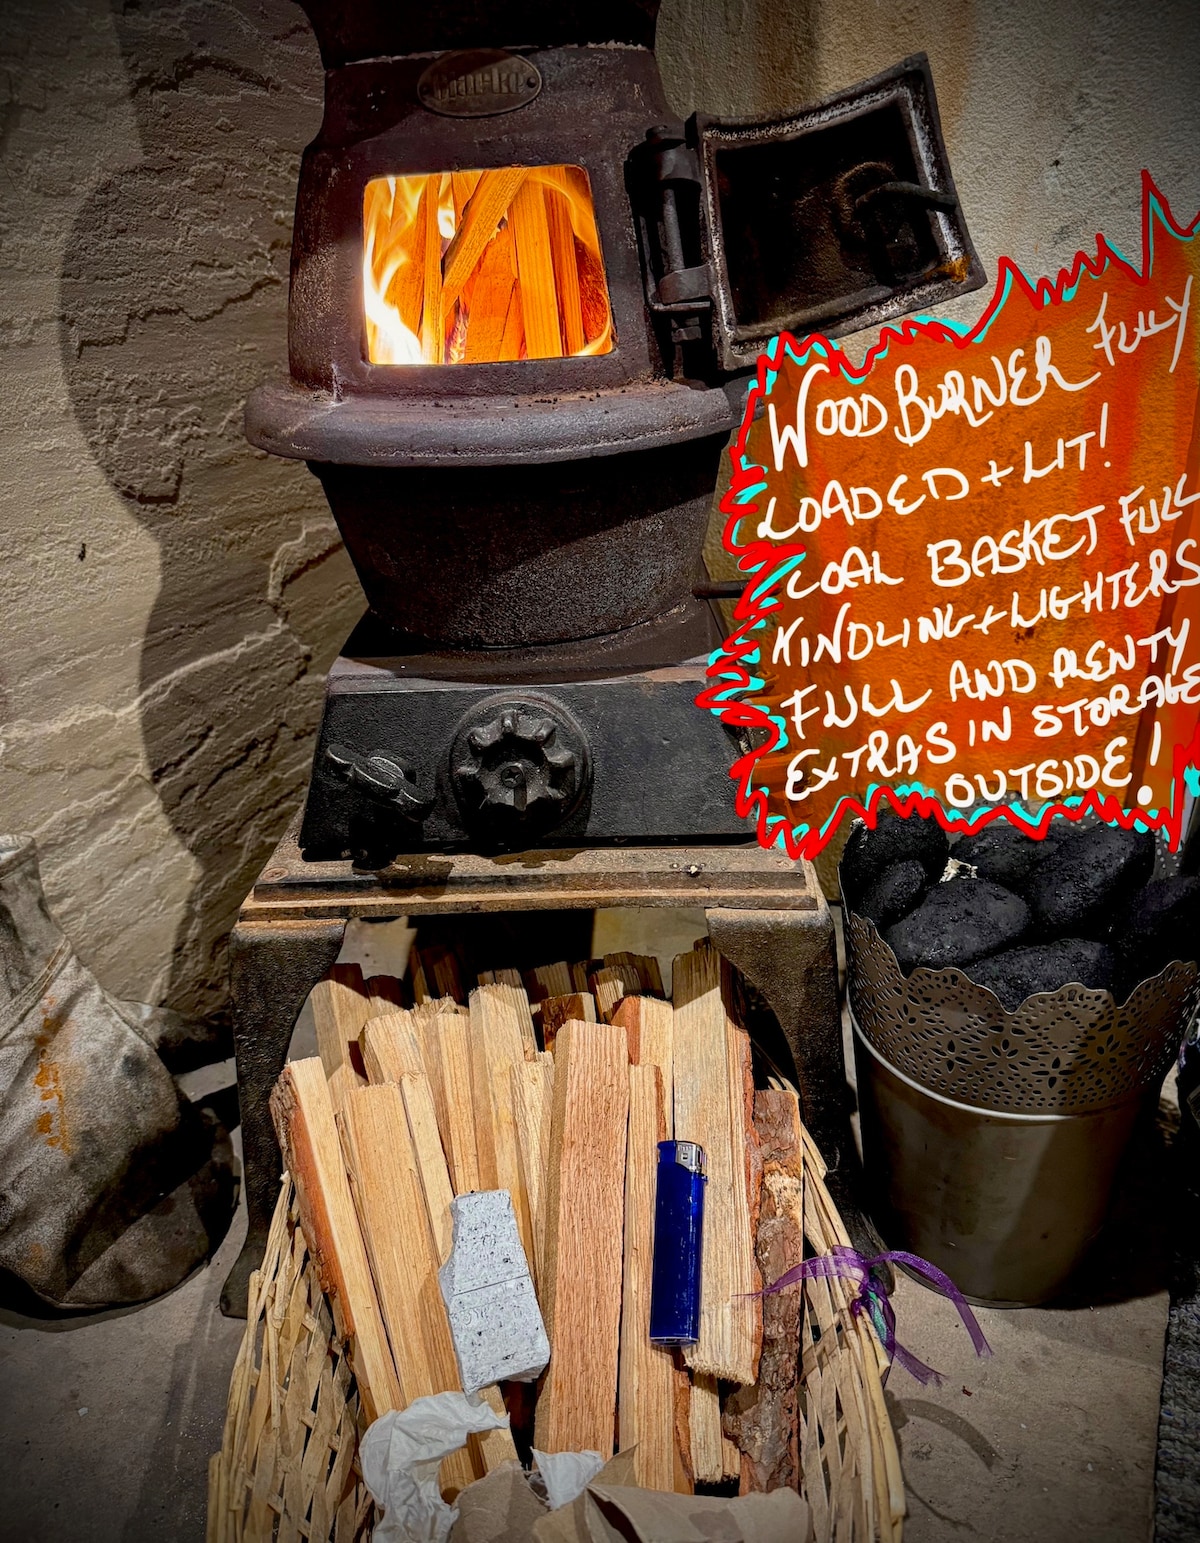 WOOD BURNER FULLY
LOADED + LIT!
COAL BASKET FULL
KINDLING + LIGHTERS
FULL AND PLENTY
EXTRAS IN STORAGE
OUTSIDE!